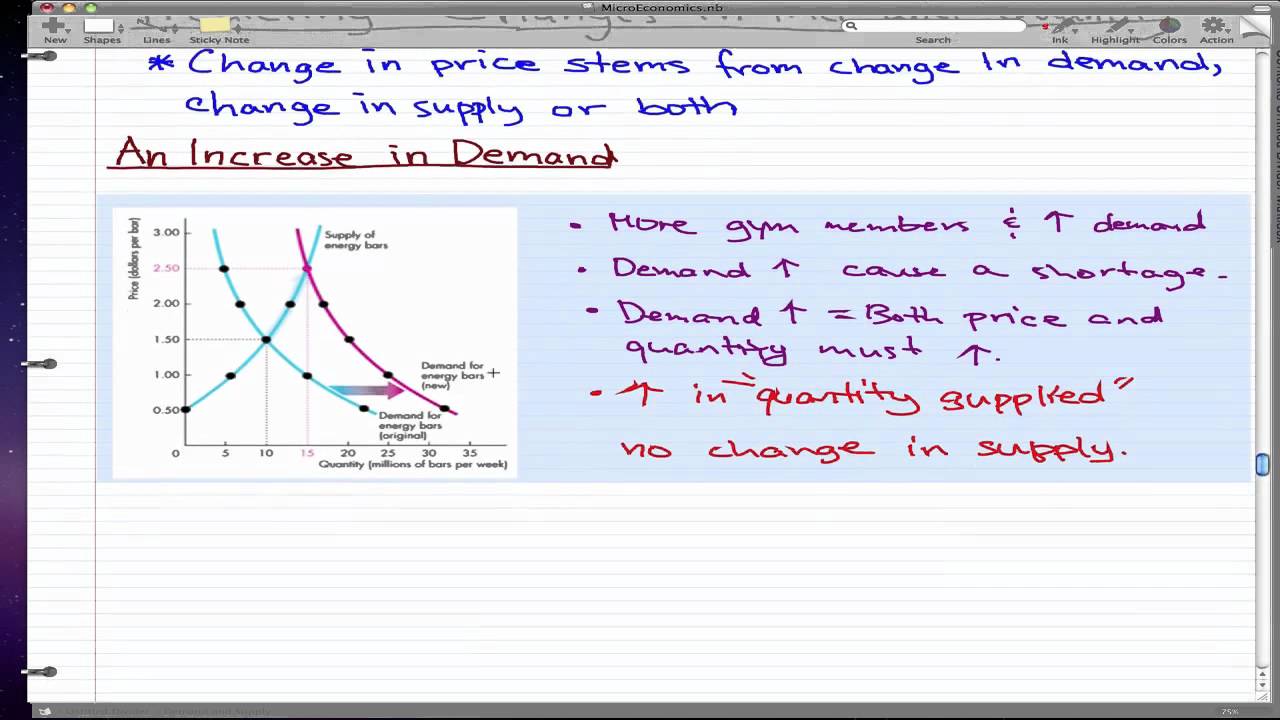 MicroEconomics.nb
New Shapes Lines Sticky Note Search Ink Highlight Colors Action
* Change in price stems from change in demand,
change in supply or both
An Increase in Demand
Price (dollars per bar)
3.00
2.50
2.00
1.50
1.00
0.50
0 5 10 15 20 25 30 35
Quantity (millions of bars per week)
Supply of
energy bars
Demand for
energy bars
(new)
Demand for
energy bars
(original)
• More gym members & ↑ demand
• Demand ↑ cause a shortage.
• Demand ↑ = Both price and
quantity must ↑.
• ↑ in "quantity supplied"
no change in supply.
Demand and Supply
75%